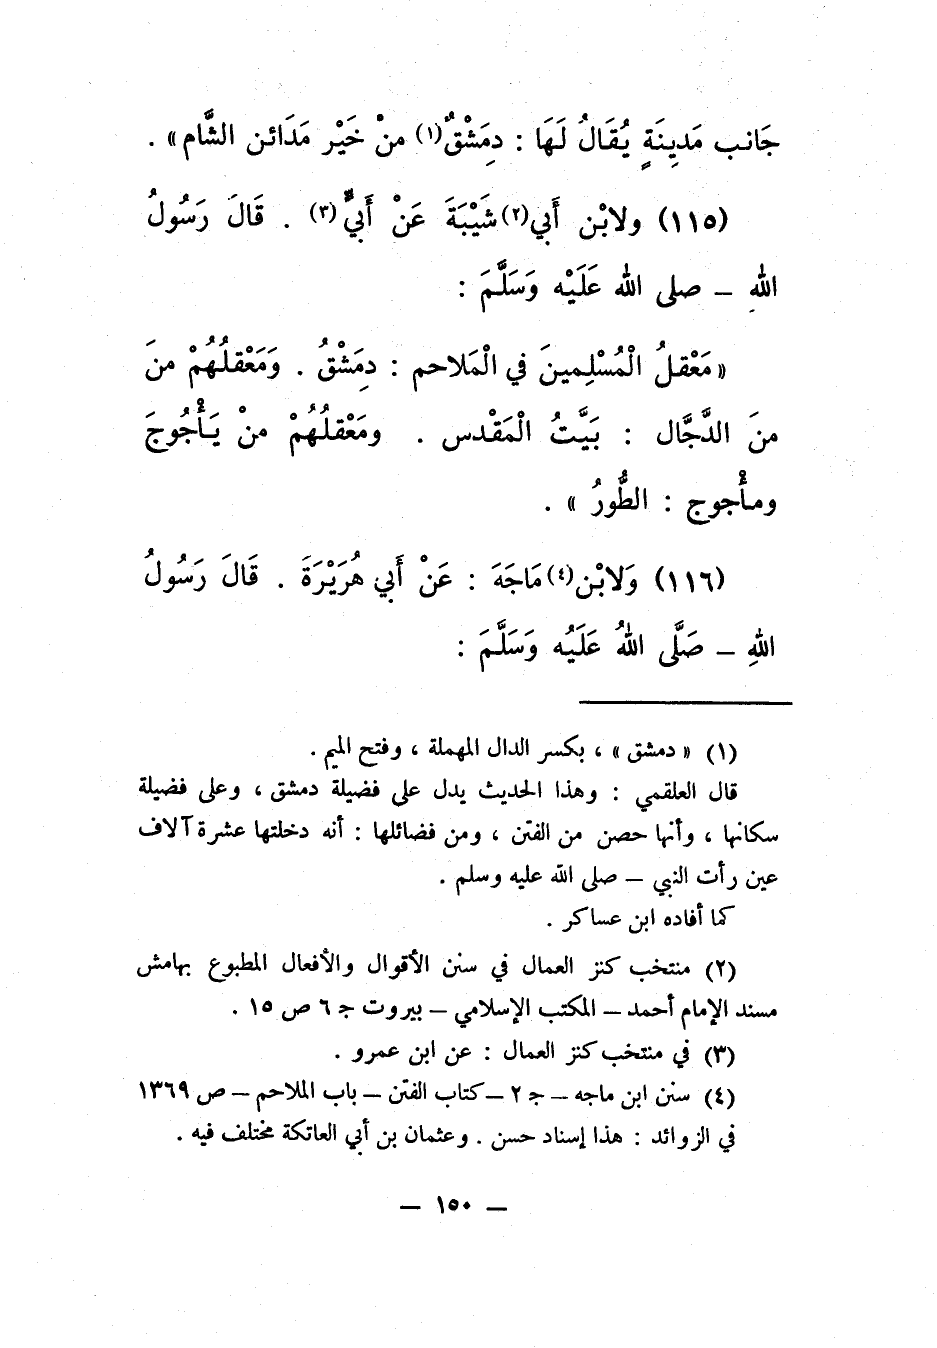 جَانب مَدينَةٍ يُقَالُ لَهَا : دِمَشْقٌ(١) منْ خَيْر مَدَائن الشَّام» .
(١١٥) ولابْن أَبي(٢) شَيْبَةَ عَنْ أَبيٍّ(٣) . قَالَ رَسُولُ
اللهِ ــ صلى الله عَلَيْه وَسَلَّمَ :
«مَعْقلُ الْمُسْلِمينَ في الْمَلاحم : دِمَشْقُ . وَمَعْقلُهُمْ منَ
منَ الدَّجَّال : بَيَّتُ الْمَقْدس . ومَعْقلُهُمْ منْ يَأْجُوجَ
ومأْجوج : الطُّورُ » .
(١١٦) وَلابْن(٤) مَاجَهَ : عَنْ أَبي هُرَيْرَةَ . قَالَ رَسُولُ
اللهِ ــ صَلَّى اللهُ عَلَيُه وَسَلَّمَ :
(١) « دمشق » ، بكسر الدال المهملة ، وفتح الميم .
قال العلقمي : وهذا الحديث يدل على فضيلة دمشق ، وعلى فضيلة
سكانها ، وأنها حصن من الفتن ، ومن فضائلها : أنه دخلتها عشرة آلاف
عين رأت النبي ــ صلى الله عليه وسلم .
كما أفاده ابن عساكر .
(٢) منتخب كنز العمال في سنن الأقوال والأفعال المطبوع بهامش
مسند الإمام أحمد ــ المكتب الإسلامي ــ بيروت جـ ٦ ص ١٥ .
(٣) في منتخب كنز العمال : عن ابن عمرو .
(٤) سنن ابن ماجه ــ جـ ٢ ــ كتاب الفتن ــ باب الملاحم ــ ص ١٣٦٩
في الزوائد : هذا إسناد حسن . وعثمان بن أبي العاتكة مختلف فيه .
ــ ١٥٠ ــ